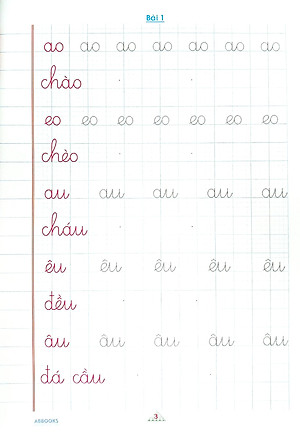 Bài 1
ao ao ao ao ao ao ao
chào
eo eo eo eo eo eo eo
chèo
au au au au au
cháu
êu êu êu êu êu
đều
âu âu âu âu âu
đá cầu
3
ABBOOKS